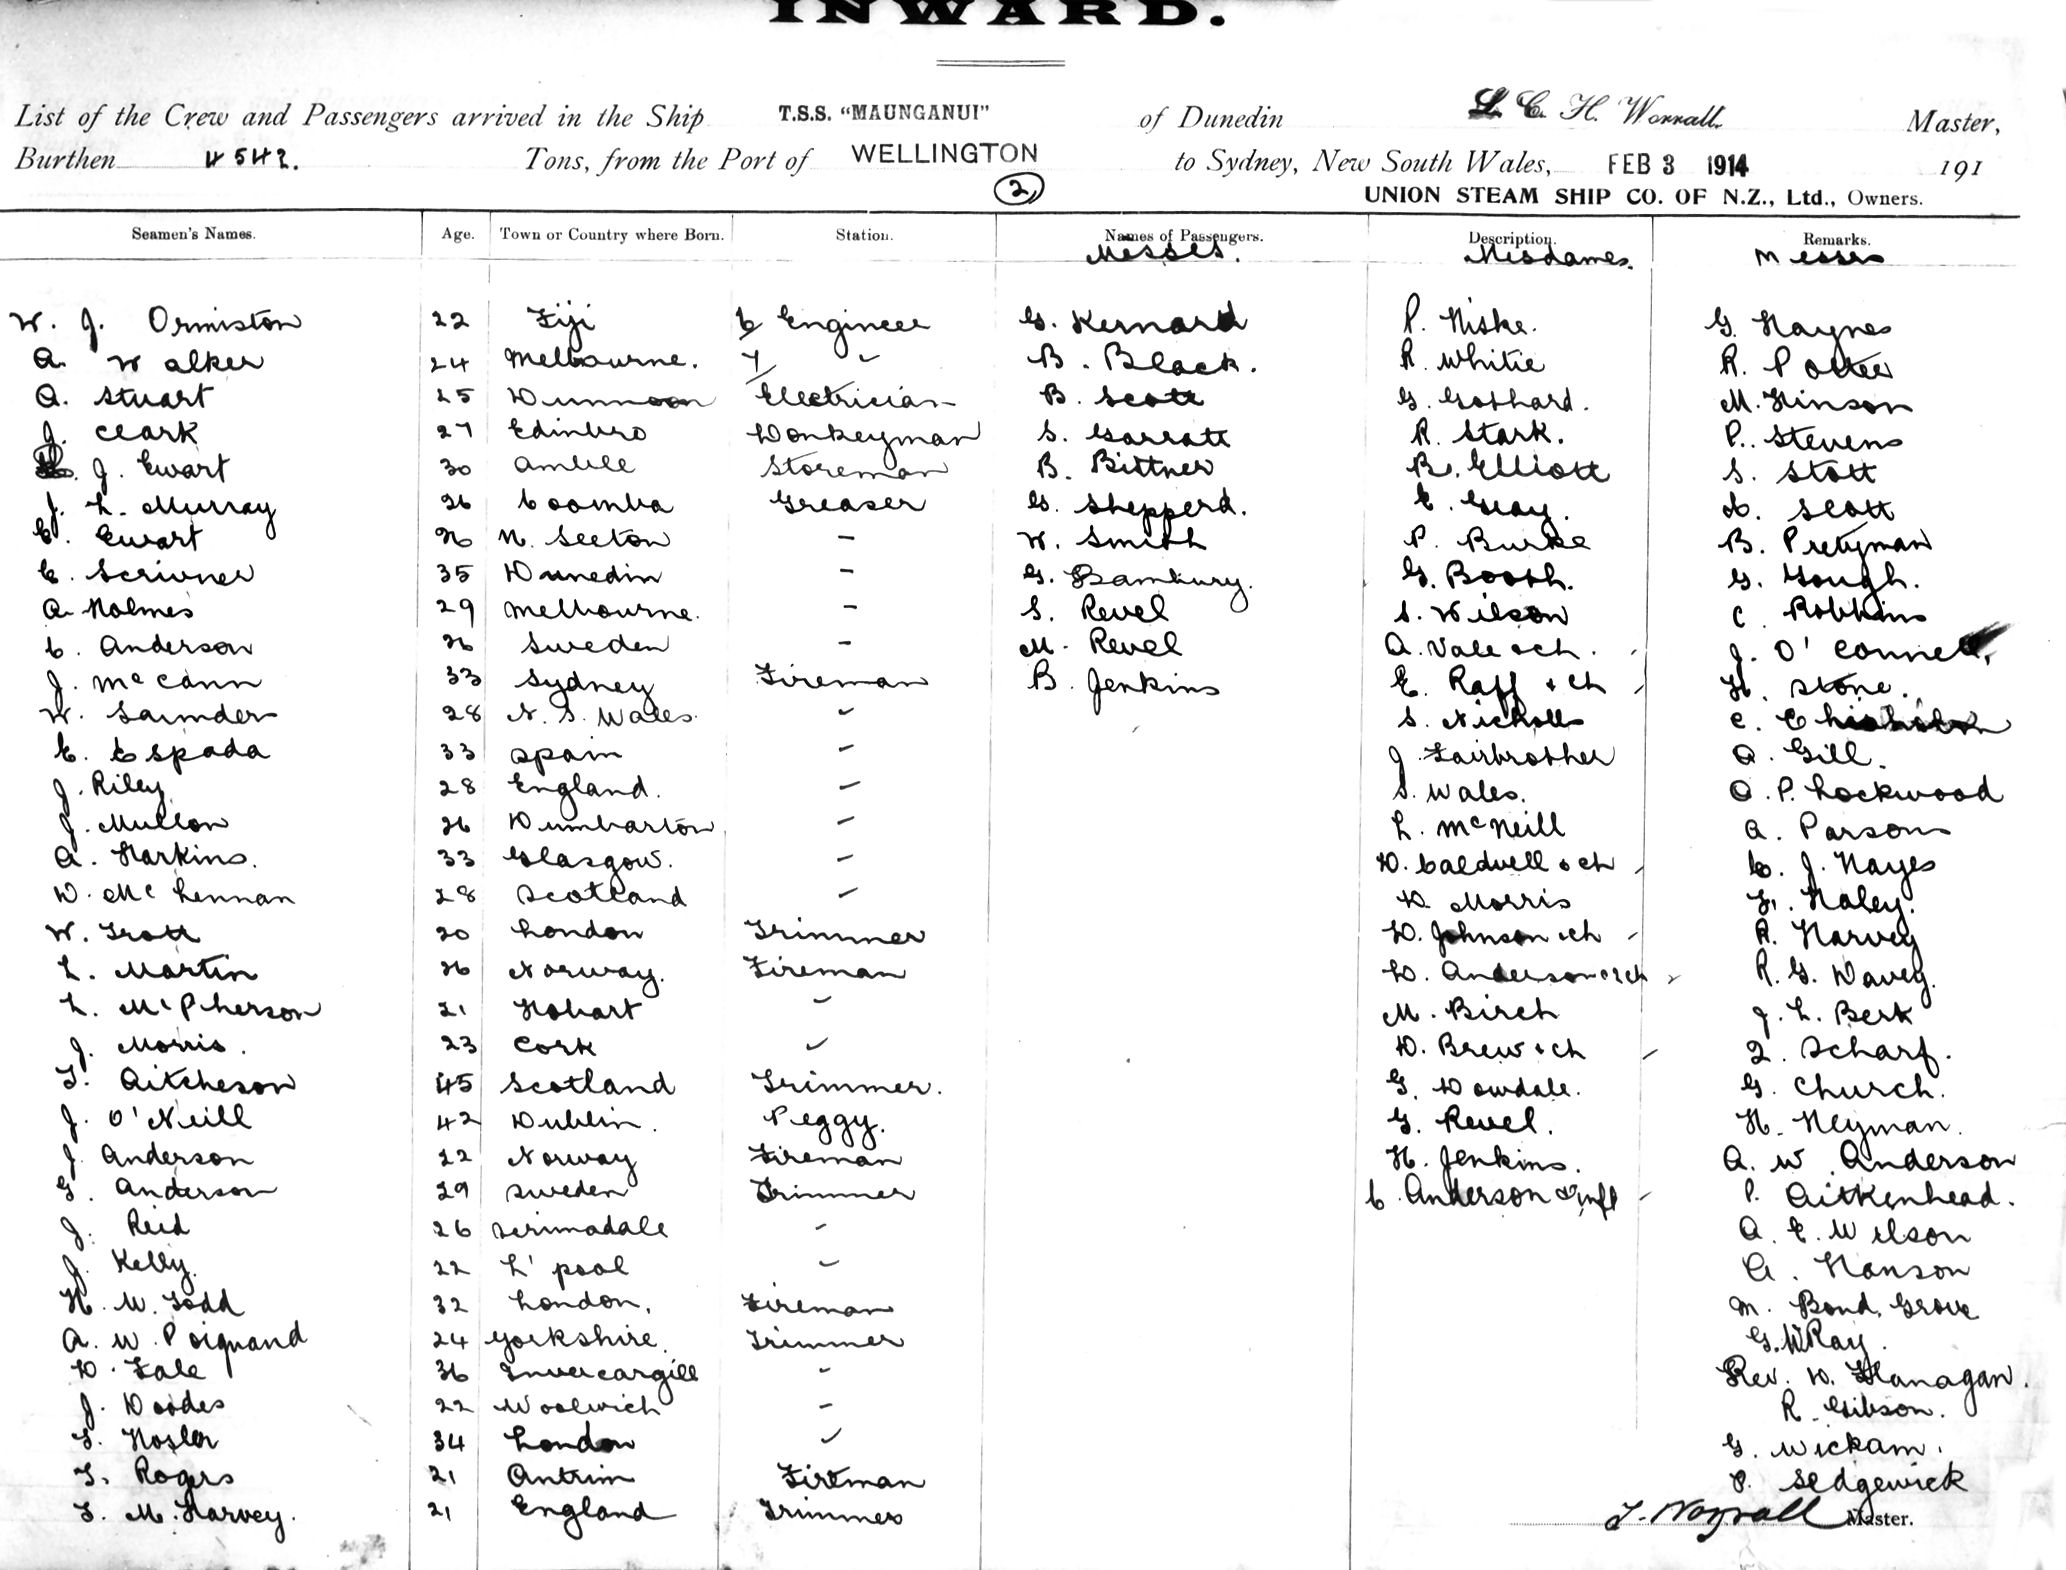 INWARD.
List of the Crew and Passengers arrived in the Ship T.S.S. "MAUNGANUI" of Dunedin C. H. Worrall. Master,
Burthen 4542. Tons, from the Port of WELLINGTON to Sydney, New South Wales, FEB 3 1914 191
2 UNION STEAM SHIP CO. OF N.Z., Ltd., Owners.
Seamen's Names. Age. Town or Country where Born. Station. Names of Passengers. Description. Remarks.
Messrs. Mesdames. Messrs
W. J. Ormiston 22 Fiji 6 Engineer G. Kernard P. Hiske. G. Haynes
A. Walker 24 Melbourne. 7 " B. Black. R. Whitie R. Potter
A. Stuart 25 Dunnoon Electrician B. Scott G. Gothard. M. Hinson
J. Clark 27 Edinbro Donkeyman S. Garratt R. Stark. P. Stevens
J. Ewart 30 Amble Storeman B. Bittner B. Elliott S. Stott
J. L. Murray 26 Coomba Greaser G. Shepperd. E. Gray. D. Scott
E. Ewart 26 N. Seeton - W. Smith P. Burke B. Prettyman
E. Scrivner 35 Dunedin - G. Bambury. G. Booth. G. Gough.
A. Holmes 29 Melbourne. - S. Revel S. Wilson C Robkins
C. Anderson 26 Sweden - M. Revel A. Vale & ch. J. O'Connell.
J. McCann 33 Sydney Fireman B. Jenkins E. Raff & ch H. Stone.
W. Saunders 28 N. S. Wales. " S. Nicholls C. Chisholm
E. Espada 33 Spain " J Fairbrother A. Gill.
J. Riley 28 England. " S. Wales. A. P. Lockwood
J. Mullon 26 Dumbarton " L. McNeill A. Parsons
A. Harkins. 33 Glasgow. " D. Caldwell & ch C. J. Hayes
D. McLennan 28 Scotland " D. Morris F. Haley.
W. Trott 20 London Trimmer D. Johnson & ch R. Harvey
L. Martin 26 Norway. Fireman D. Anderson & ch R. G. Davey.
L. McPherson 21 Hobart " M. Birch J. L. Berk
J. Morris. 23 Cork " D. Brew & ch Scharf.
T. Aitcheson 45 Scotland Trimmer. G. Dowdale. G. Church.
J. O'Neill 42 Dublin. Peggy. G. Revel. H. Heyman.
J. Anderson 22 Norway Fireman H. Jenkins. A. W. Anderson
G. Anderson 29 Sweden Trimmer C. Anderson & inft P. Aitkenhead.
J. Reid 26 " A. E. Wilson
J. Kelly. 22 L'pool " A. Hanson
H. W. Todd 32 London. Fireman M. Bond. Grove
A. W. Poignand 24 Yorkshire. Trimmer G. McRay.
D. Fale 36 Invercargill " Rev. D. Flanagan.
J. Doodes 22 Woolwich - R. Gibson.
T. Hosler 34 London " G. Wickam.
T. Rogers 21 Antrim Fireman P. Sedgewick
T. M. Harvey. 21 England Trimmer Worrall Master.